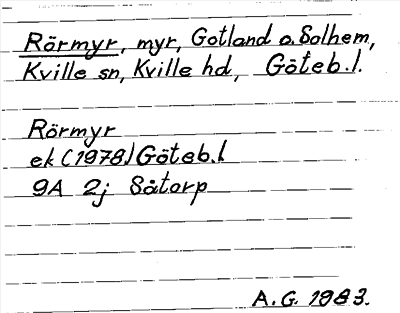 Rörmyr, myr, Gotland o. Solhem,
Kville sn, Kville hd, Göteb. l.
Rörmyr
ek (1978) Göteb. l
9A 2j Såtorp
A. G. 1983.